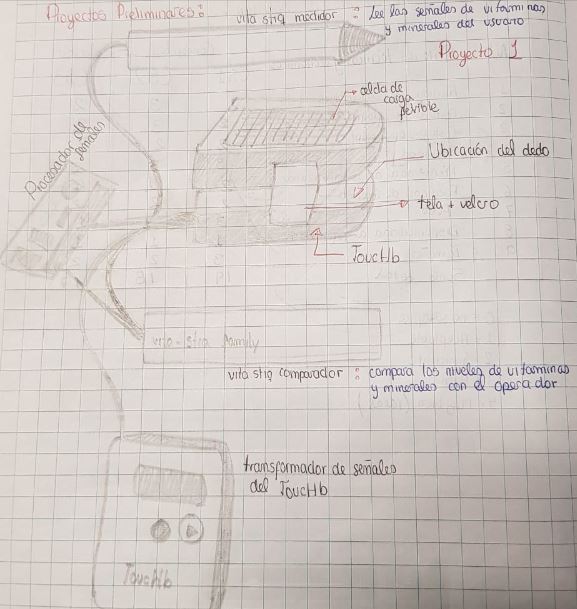 Proyectos Preliminares :
vita stiq medidor : Lee las señales de vitaminas
y minerales del usuario
Proyecto 1
celda de
carga
flexible
Procesador de
señales
Ubicación del dedo
tela + velcro
TouchHb
vita-stiq family
vita stiq comparador : compara los niveles de vitaminas
y minerales con el operador
transformador de señales
del TouchHb
TouchHb